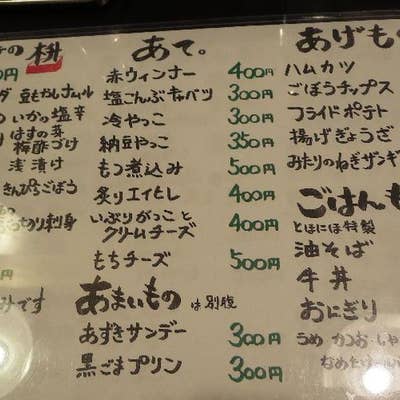 の 枡
円
豆もやしナムル
いかの塩辛
はすの芽
梅酢づけ
浅漬け
きんぴらごぼう
刺身
円
です
あて。
赤ウィンナー 400円
塩こんぶキャベツ 300円
冷やっこ 300円
納豆やっこ 350円
もつ煮込み 500円
炙りエイヒレ 400円
いぶりがっこと
クリームチーズ 400円
もちチーズ 500円
あまいもの は別腹
あずきサンデー 300円
黒ごまプリン 300円
あげもの
ハムカツ
ごぼうチップス
フライドポテト
揚げぎょうざ
みたりのねぎザンギ
ごはんも
とほにほ特製
油そば
牛丼
おにぎり
うめ かつお しゃ